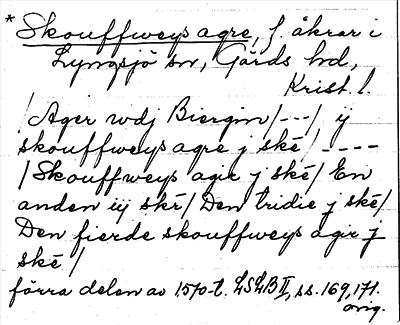 * Skouffweys agre, f. åkrar i
Lyngsjö sn, Gärds hd,
Krist. l.
/Ager wdj Biergin/---/ ij
skouffweys agre j skè/ ----
/Skouffweys agir j skè/ En
anden iij skè/ Den tridie j skè/
Den fierde skouffweys agir j
skè/
förra delen av 1570-t. LSLB II, ss. 169, 171.
orig.